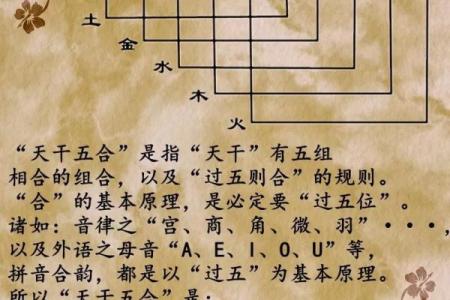 土
金
水
木
火
“天干五合”是指“天干”有五组
相合的组合，以及“过五则合”的规则。
“合”的基本原理，是必定要“过五位”。
诸如：音律之“宫、商、角、微、羽”···，
以及外语之母音“A、E、I、O、U”等，
拼音合韵，都是以“过五”为基本原理。
所以“天干五合”是：